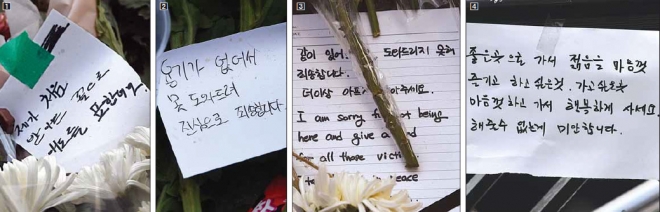 1
꽃으로
애도를 표합니다.
2
용기가 없어서
못 도와드려
진심으로 죄송합니다.
3
같이 있어. 도와드리지 못해
죄송합니다.
더이상
I am sorry for not being
here and give a
all those victi
peace
4
좋은곳으로 가서 젊음을 마음껏
즐기고 하고싶은것. 가고싶은곳
마음껏하고 가서 행복하게 사세요.
해줄수 없는게 미안합니다.